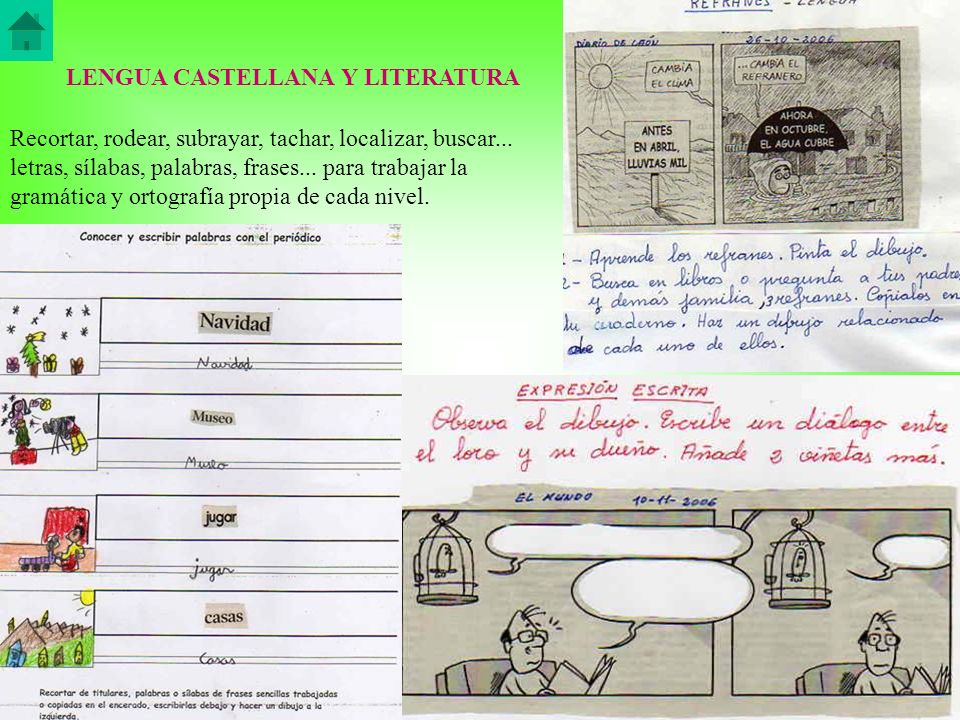 LENGUA CASTELLANA Y LITERATURA
Recortar, rodear, subrayar, tachar, localizar, buscar...
letras, sílabas, palabras, frases... para trabajar la
gramática y ortografía propia de cada nivel.
REFRANES - LENGUA
DIARIO DE LEÓN
26-10-2006
CAMBIA
EL CLIMA
ANTES
EN ABRIL,
LLUVIAS MIL
...CAMBIA EL
REFRANERO
AHORA
EN OCTUBRE,
EL AGUA CUBRE
- Aprende los refranes. Pinta el dibujo.
2- Busca en libros o pregunta a tus padres
y demás familia, 3 refranes. Cópialos en
tu cuaderno. Haz un dibujo relacionado
de cada uno de ellos.
Conocer y escribir palabras con el periódico
Navidad
Navidad
Museo
Museo
jugar
jugar
casas
Casas
Recortar de titulares, palabras o sílabas de frases sencillas trabajadas
o copiadas en el encerado, escribirlas debajo y hacer un dibujo a la
izquierda.
EXPRESIÓN ESCRITA
Observa el dibujo. Escribe un diálogo entre
el loro y su dueño. Añade 2 viñetas más.
EL MUNDO
10-11-2006